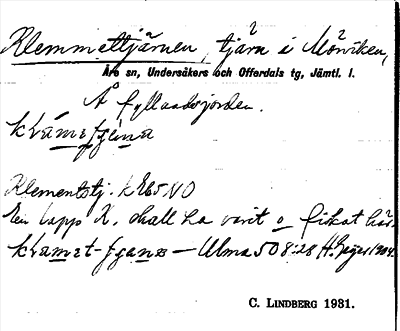 Klemmettjärnen, tjärn i Mörviken,
Åre sn, Undersåkers och Offerdals tg, Jämtl. l.
Å fyllandsjorden.
Klementstj. k Eb5 NO
En lapp K. skall ha varit o fiskat här.
Ulma 508:28 H. Geijer 1904.
C. LINDBERG 1931.